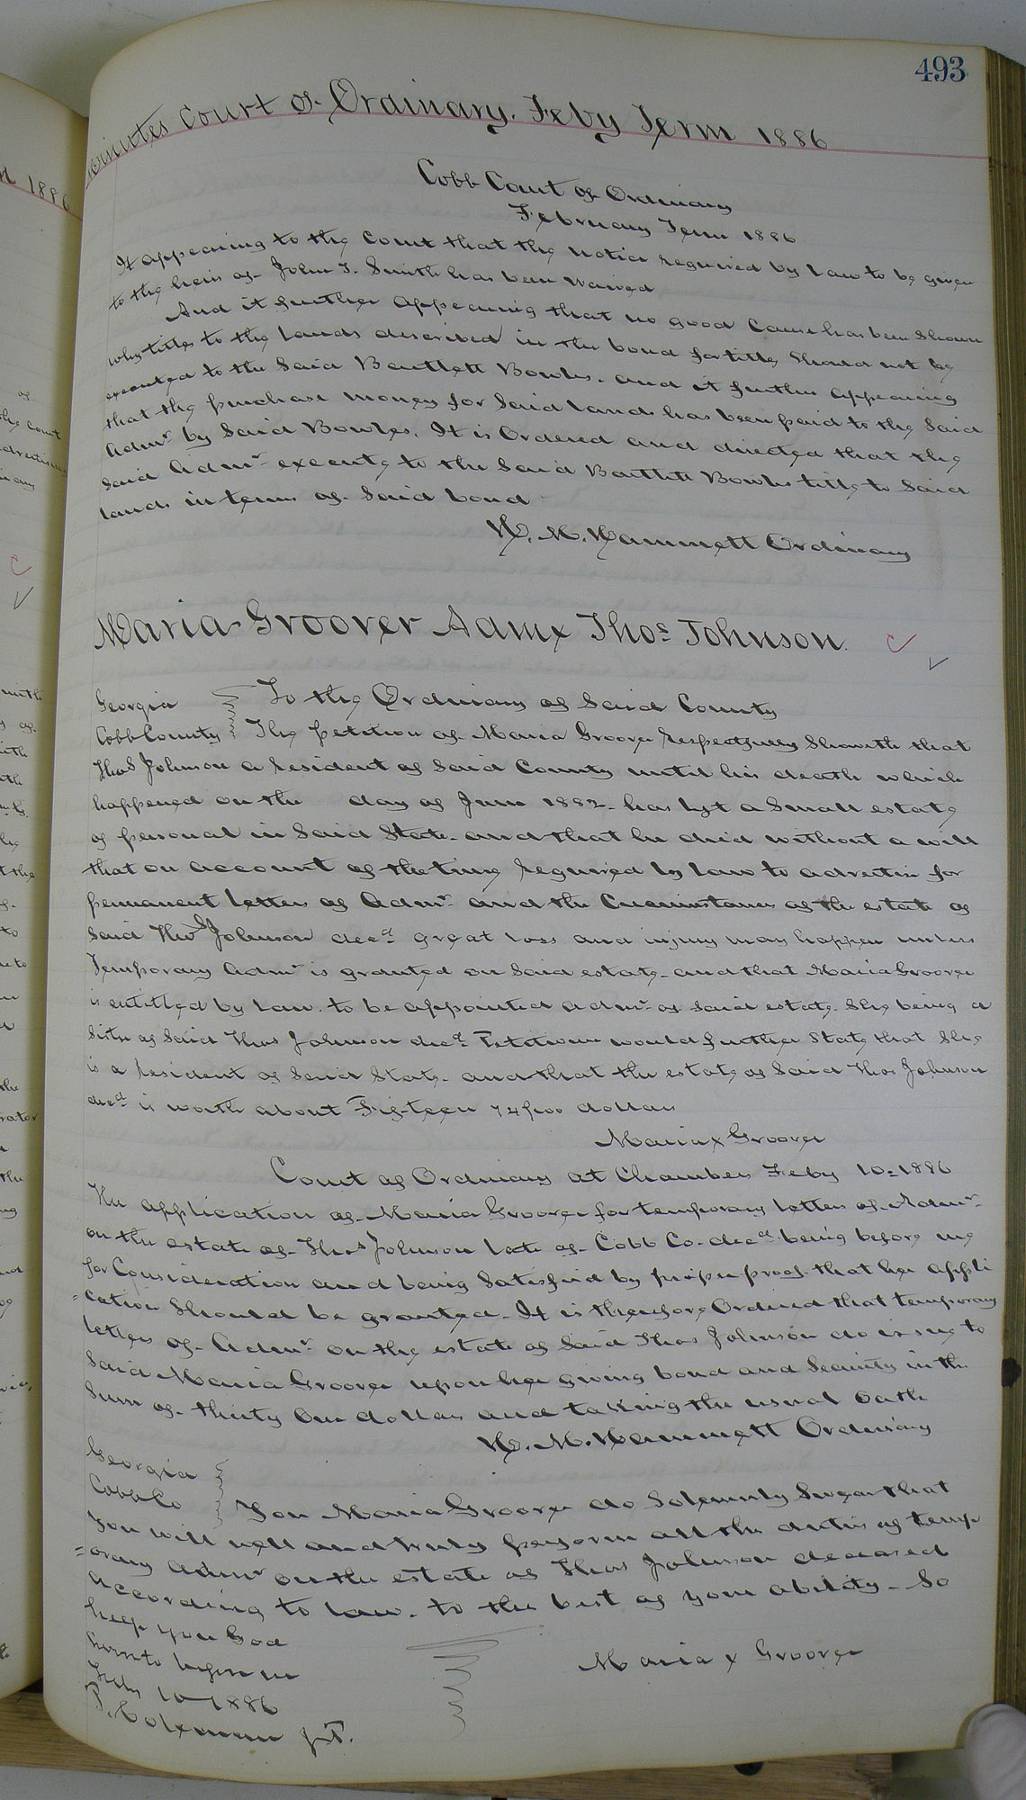 493
Minutes Court of Ordinary. Feby Term 1886
Cobb Court of Ordinary
February Term 1886
It appearing to the Court that the notice required by law to be given
to the heirs of John T. Smith has been waived
And it further appearing that no good cause has been shown
why titles to the lands described in the bond for title should not be
executed to the said Bartlett Bowles. and it further appearing
that the purchase money for said lands has been paid to the said
Admr by said Bowles. It is Ordered and directed that the
said Admr execute to the said Bartlett Bowles title to said
lands in terms of said bond
H. M. Hammett Ordinary
Maria Groover Admx Thos Johnson.
Georgia
Cobb County
To the Ordinary of said County
The petition of Maria Groover respectfully showeth that
Thos Johnson a resident of said County until his death which
happened on the day of June 1882 has left a small estate
of personal in said State and that he died without a will
that on account of the time required by law to advertise for
permanent letters of Admr and the circumstances of the estate of
said Thos Johnson decd great loss and injury may happen unless
Temporary Admr is granted on said estate and that Maria Groover
is entitled by law to be appointed admr of said estate. She being a
sister of said Thos Johnson decd Petitioner would further state that she
is a resident of said State and that the estate of said Thos Johnson
decd is worth about Fifteen 74/100 dollars
Maria x Groover
Court of Ordinary at Chambers Feby 10=1886
The application of Maria Groover for temporary letters of Admr
on the estate of Thos Johnson late of Cobb Co. decd being before me
for consideration and being satisfied by proper proof that her appli
=cation should be granted. It is therefore Ordered that temporary
letters of Admr on the estate of said Thos Johnson do issue to
said Maria Groover upon her giving bond and security in the
sum of thirty one dollars and taking the usual oath
H. M. Hammett Ordinary
Georgia
Cobb Co
You Maria Groover do solemnly swear that
you will well and truly perform all the duties of temp
=orary Admr on the estate of Thos Johnson deceased
according to law. to the best of your ability. So
help you God
Sworn to before me
Feby 10 1886
Maria x Groover
Coleman